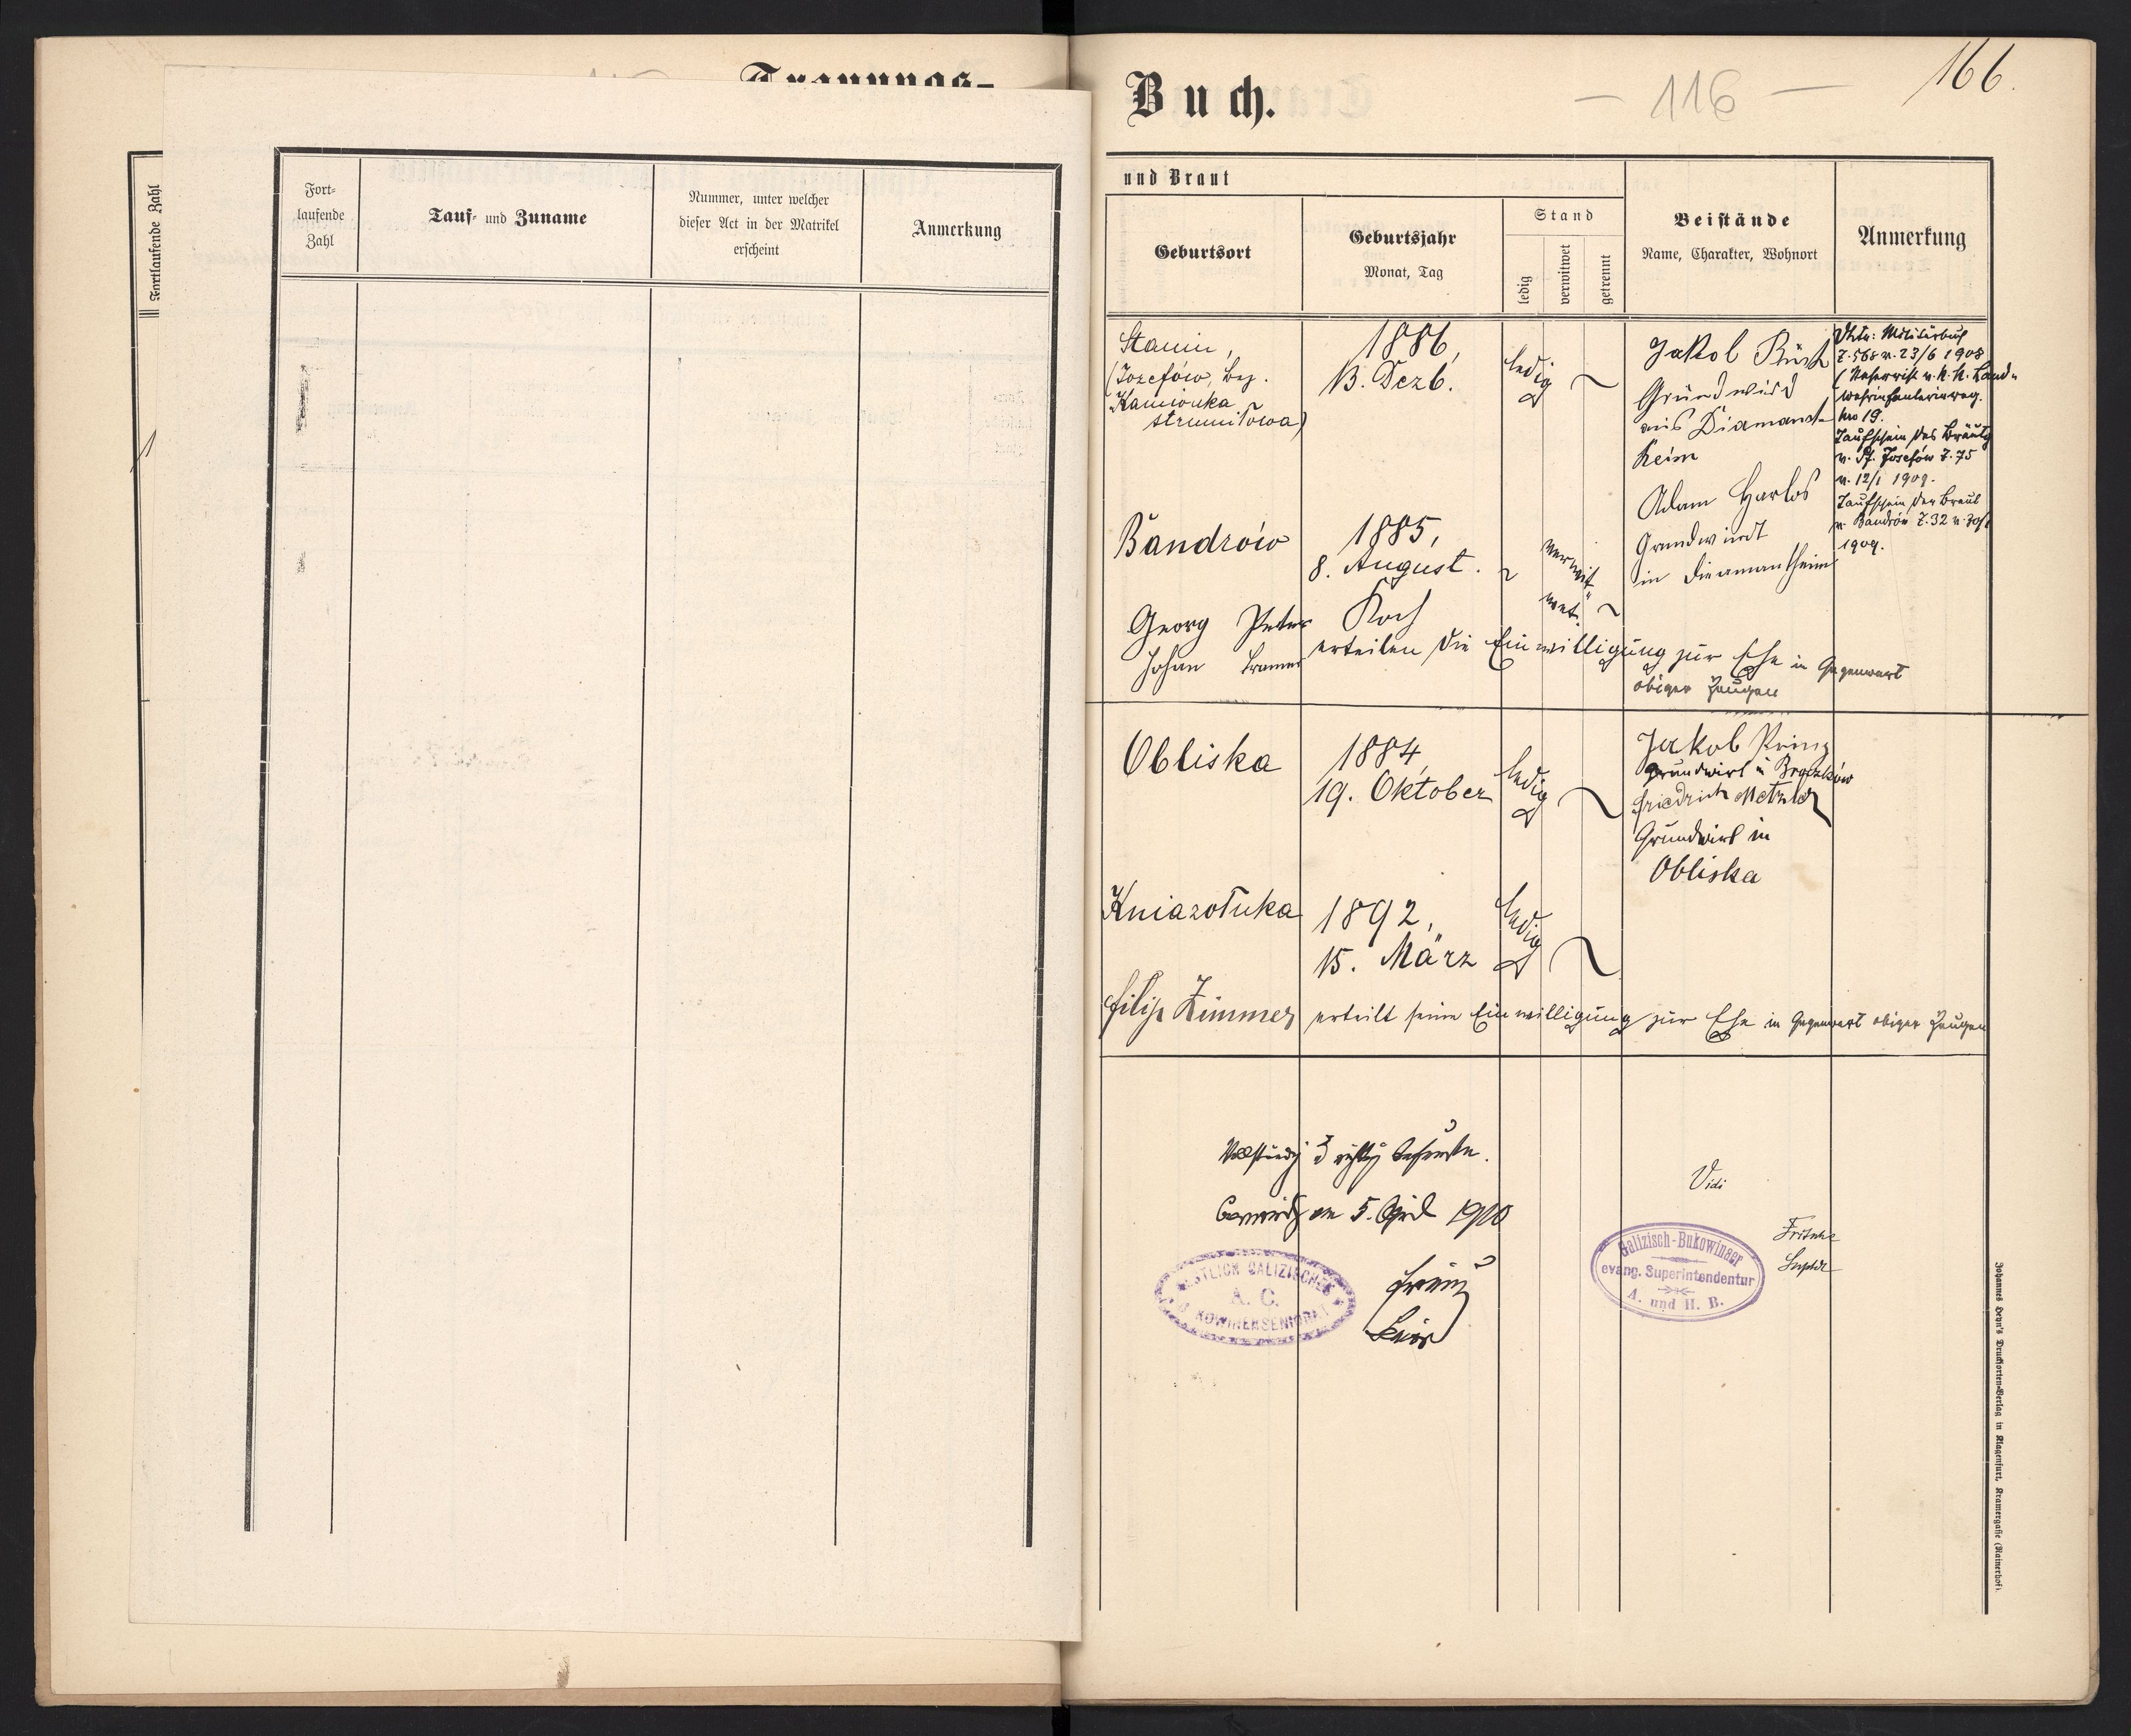 Trauungs-
Fortlaufende Zahl
Fort-
laufende
Zahl
Tauf- und Zuname
Nummer, unter welcher
dieser Act in der Matrikel
erscheint
Anmerkung
Buch.
— 116 —
166.
und Braut
Geburtsort
Geburtsjahr
Monat, Tag
Stand
ledig
verwitwet
getrennt
Beistände
Name, Charakter, Wohnort
Anmerkung
Stanin,
(Józefów, bez.
Kamionka
strumiłowa)
1886,
13. Dezb.
ledig
Jakob
Grundwird
aus Diamant
heim
Adam Harlos
Grundwirdt
in Diamantheim
Militärbuch
Z. 568 v. 23/6 1908
k. k. Land-
wehrinfanteriereg.
Nro 19.
Taufschein des Bräutg
v. Pf. Josefów Z. 75
v. 12/1 1909.
Taufschein der Braut
v. Bandrów Z. 32 v.
1909.
Bandrów
1885,
8. August.
verwit-
wet.
Georg Peter Koch
Johan
erteilen die Einwilligung zur Ehe in Gegenwart
obiger Zeugen
Obliska
1884,
19. Oktober
ledig
Jakob Prinz
Grundwirt in
Friedrich Metzler
Grundwirt in
Obliska
Kniazołuka
1892,
15. März
ledig
Filip Zimmer erteilt seine Einwilligung zur Ehe in Gegenwart obiger Zeugen
Vollständig & richtig befunden.
am 5. April 1910
Vidi
ESTLICH GALIZISCHES
A. C.
KOWINERSENIORAT
Galizisch-Bukowinaer
evang. Superintendentur
A. und H. B.
Johannes Heyn's Drucksorten-Verlag in Klagenfurt, Kramergasse (Rainerhof).